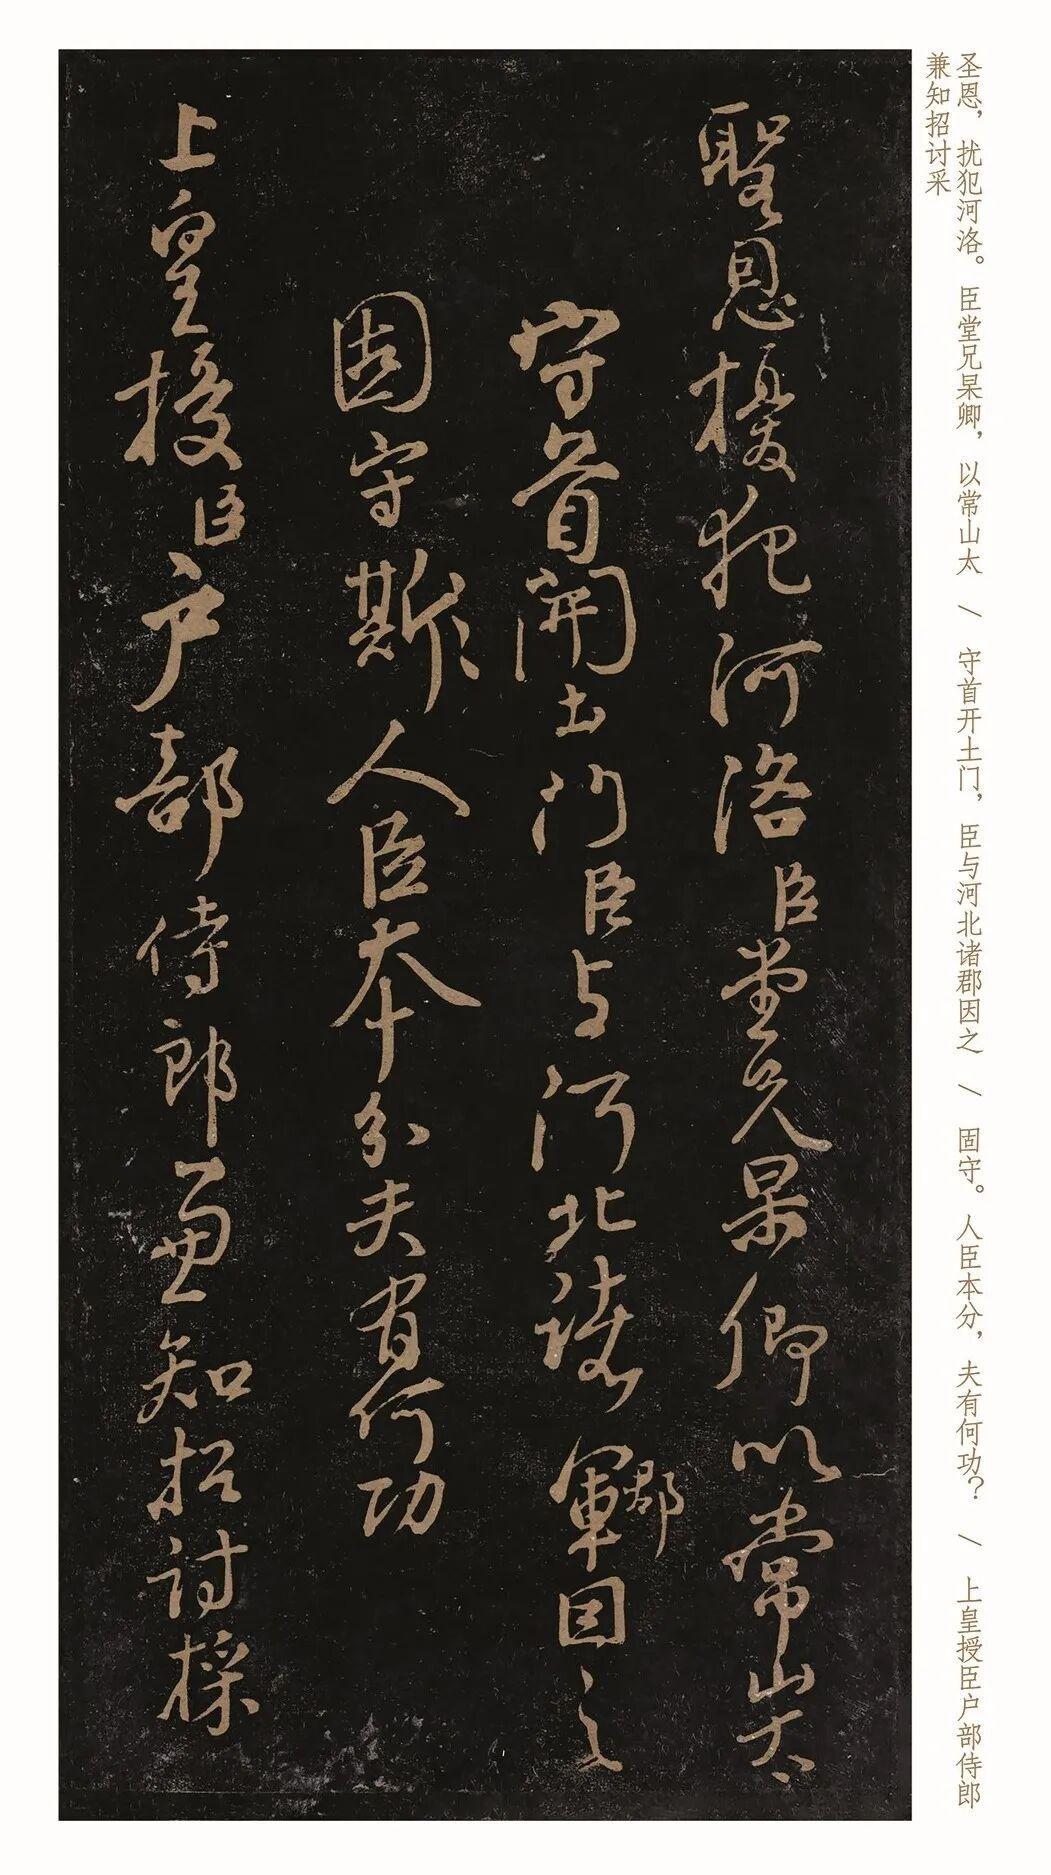 圣恩，扰犯河洛。臣堂兄杲卿，以常山太 / 守首开土门，臣与河北诸郡因之 / 固守。人臣本分，夫有何功？ / 上皇授臣户部侍郎
兼知招讨采
聖恩擾犯河洛臣堂兄杲卿以常山太
守首開土門臣与河北諸軍郡因之
固守斯人臣本分夫有何功
上皇授臣户部侍郎兼知招討採